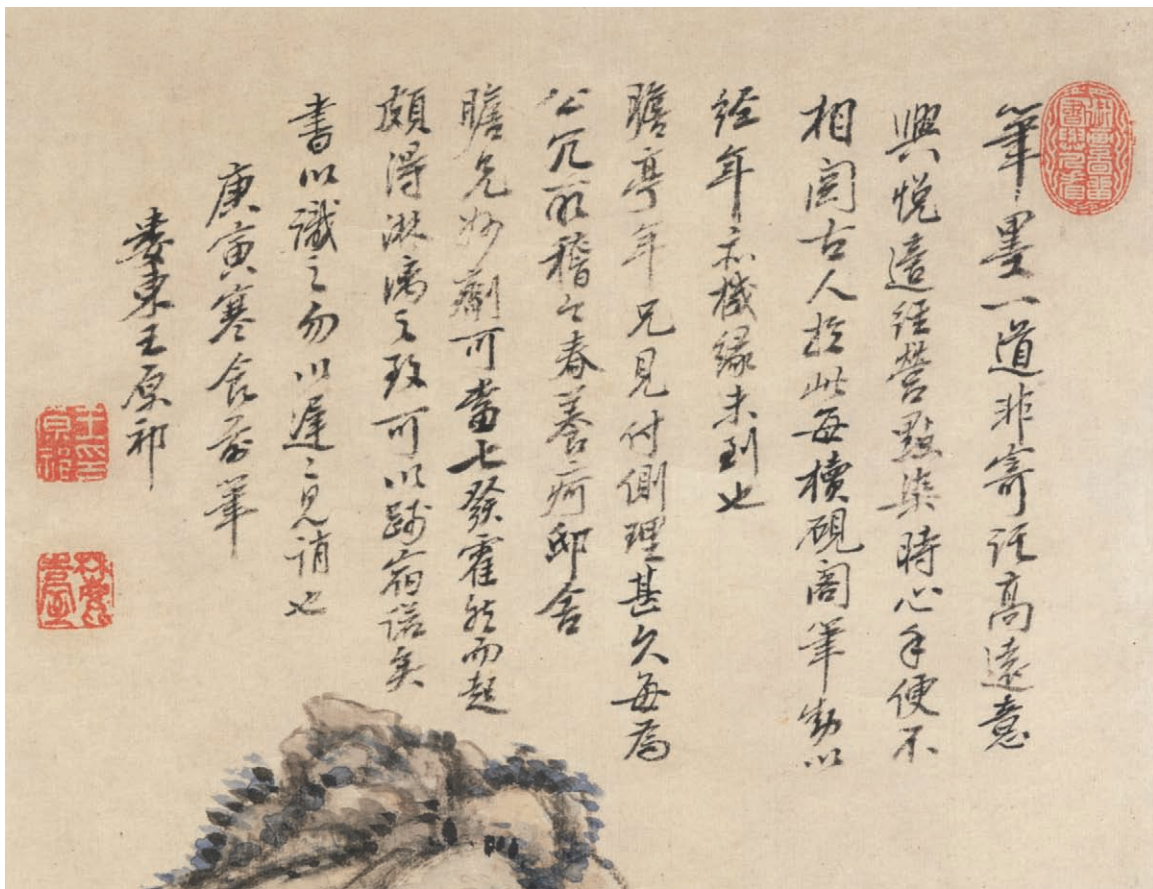 筆墨一道非寄託高遠意
興悅適經營點染時心手便不
相關古人於此每櫝硯閣筆動以
經年亦機緣未到也
瞻亭年兄見付側理甚久每為
公冗所稽今春養疴邸舍
瞻兄妙劑可當七發霍然而起
頗得淋漓之致可以踐宿諾矣
書以識之勿以遲〻見誚也
庚寅寒食前筆
婁東王原祁
王原祁印
麓臺